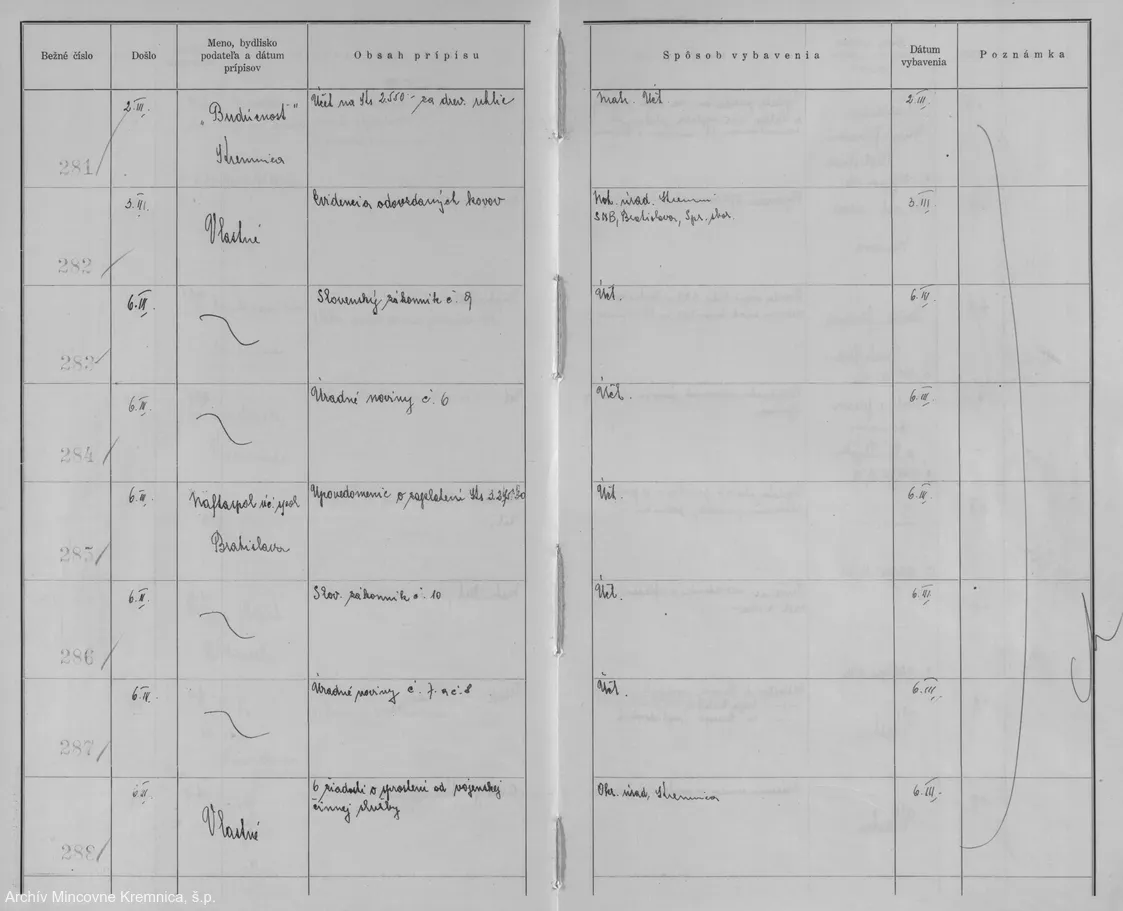 Bežné číslo
Došlo
Meno, bydlisko
podateľa a dátum
prípisov
Obsah prípisu
Spôsob vybavenia
Dátum
vybavenia
Poznámka
281/
2.III.
"Budúcnosť"
Kremnica
Účet na Ks 2.550.- za drev. uhlie
Mat. Účt.
2.III.
282/
3.III.
Vlastné
Evidencia odovzdaných kovov
Not. úrad. Kremni
SNB, Bratislava, Spr. zbor.
3.III.
283/
6.III.
Slovenský zákonník č. 9
Účt.
6.III.
284/
6.III.
Úradné noviny č. 6
Účt.
6.III.
285/
6.III.
Naftaspol úč. spol
Bratislava
Upovedomenie o zaplatení Ks
Účt.
6.III.
286/
6.III.
Slov. zákonník č. 10
Účt.
6.III.
287/
6.III.
Úradné noviny č. 7. a č. 8
Účt.
6.III.
288/
6.III.
Vlastné
6 žiadostí o sprostení od vojenskej
činnej služby
Okr. úrad, Kremnica
6.III.
Archív Mincovne Kremnica, š.p.